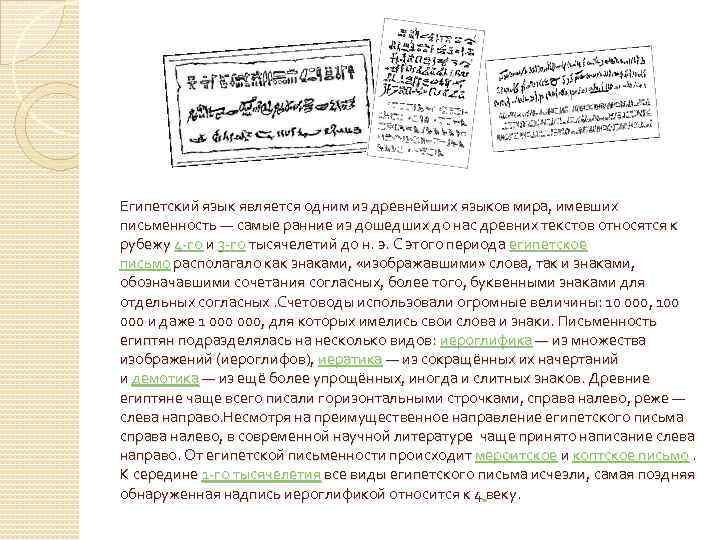 Египетский язык является одним из древнейших языков мира, имевших
письменность — самые ранние из дошедших до нас древних текстов относятся к
рубежу 4-го и 3-го тысячелетий до н. э. С этого периода египетское
письмо располагало как знаками, «изображавшими» слова, так и знаками,
обозначавшими сочетания согласных, более того, буквенными знаками для
отдельных согласных .Счетоводы использовали огромные величины: 10 000, 100
000 и даже 1 000 000, для которых имелись свои слова и знаки. Письменность
египтян подразделялась на несколько видов: иероглифика — из множества
изображений (иероглифов), иератика — из сокращённых их начертаний
и демотика — из ещё более упрощённых, иногда и слитных знаков. Древние
египтяне чаще всего писали горизонтальными строчками, справа налево, реже —
слева направо.Несмотря на преимущественное направление египетского письма
справа налево, в современной научной литературе чаще принято написание слева
направо. От египетской письменности происходит мероитское и коптское письмо .
К середине 1-го тысячелетия все виды египетского письма исчезли, самая поздняя
обнаруженная надпись иероглификой относится к 4 веку.